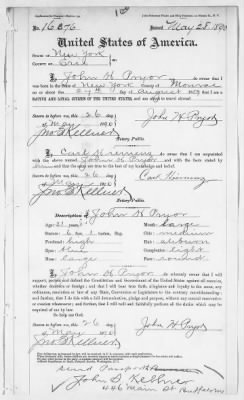 No. 16376 Issued May 28 1890
United States of America.
STATE OF New York
COUNTY OF Erie
I, John H Pryor do swear that I
was born in the State of New York County of Monroe
on the 27th day of August 185 that I am a
NATIVE AND LOYAL CITIZEN OF THE UNITED STATES, and am about to travel abroad.
Sworn to before me, this 26
of May 1890 John H Pryor
Jno. B Kellner
Notary Public.
I, Carl
acquainted with the above named John H Pryor and with the facts stated by
him and that the same are true to the best of my knowledge and belief.
Sworn to before me, this 26
of May 1890 Carl
Jno B Kellner
Notary Public.
Description of John H Pryor
Age: years Mouth: large
Stature: 6 feet, 1 inches, Eng. Chin: medium
Forehead: high Hair: auburn
Eyes: blue Complexion: light
Nose: large Face: round
I, John H Pryor do solemnly swear that I will
support, protect and defend the Constitution and Government of the United States against all enemies,
whether domestic or foreign; and that I will bear true faith, allegiance and loyalty to the same, any
ordinance, resolution or law of any State, Convention or Legislature to the contrary notwithstanding;
and further, that I do this with a full determination, pledge and purpose, without any mental reservation
or evasion whatsoever; and further, that I will well and faithfully perform all the duties which may be
required of me by law.
So help me God.
Sworn to before me, this 26
of May 1890 John H Pryor
Jno B Kellner
Notary Public.
Send Passport to
John B Kellner
446 Main St Buffalo